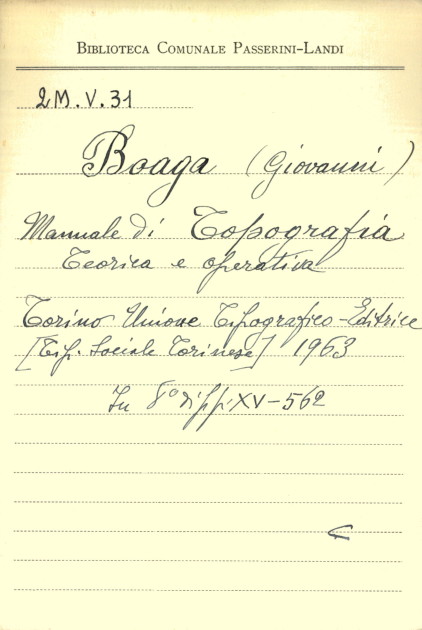 BIBLIOTECA COMUNALE PASSERINI-LANDI
2M.V.31
Boaga (Giovanni)
Manuale di Topografia
Teorica e operativa
Torino Unione Tipografico-Editrice
[Tip. Sociale Torinese] 1963
In 8° di pp. XV-562